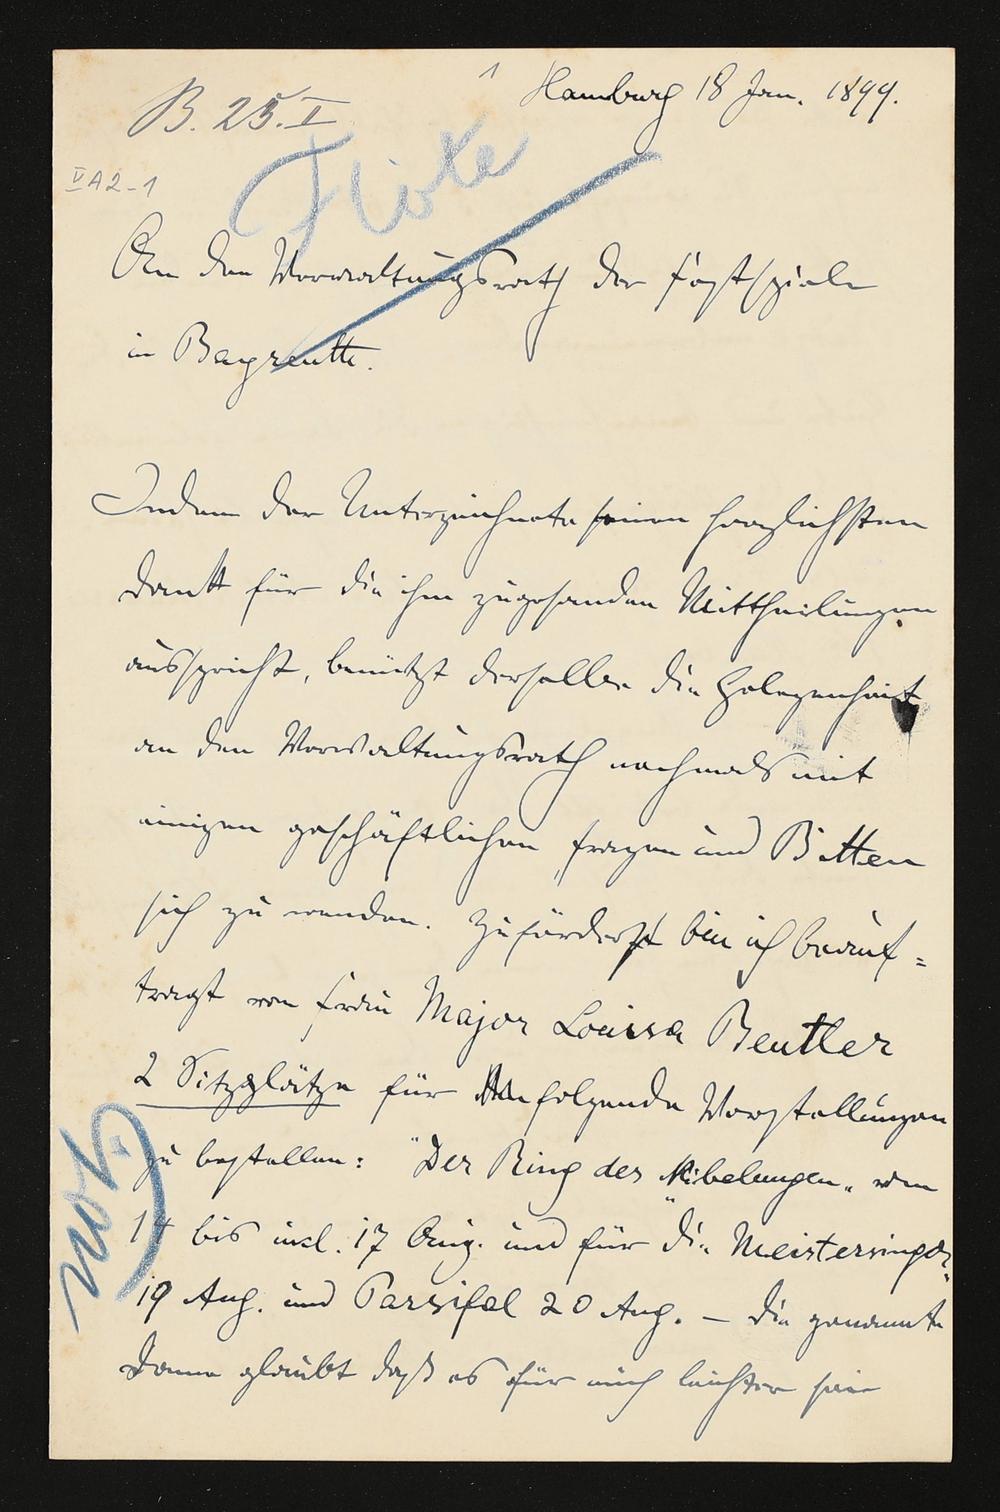 1 Hamburg 18 Jan. 1899.
B. 25. I
Flöte
V A 2-1
An den Verwaltungsrath der Festspiele
in Bayreuth.
Indem der Unterzeichnete seinen herzlichsten
Dank für die ihm zugesanden Mittheilungen
ausspricht, benützt derselbe die Gelegenheit
an den Verwaltungsrath nochmals mit
einigen geschäftlichen Fragen und Bitten
sich zu wenden. Zuförderst bin ich beauf=
tragt von Frau Major Louisa Beutler
2 Sitzplätze für folgende Vorstellungen
zu bestellen: "Der Ring des Nibelungen" vom
14 bis incl. 17 Aug. und für "die Meistersinger"
19 Aug. und Parsifal 20 Aug. — Die genannte
Dame glaubt daß es für mich leichter sei
not.